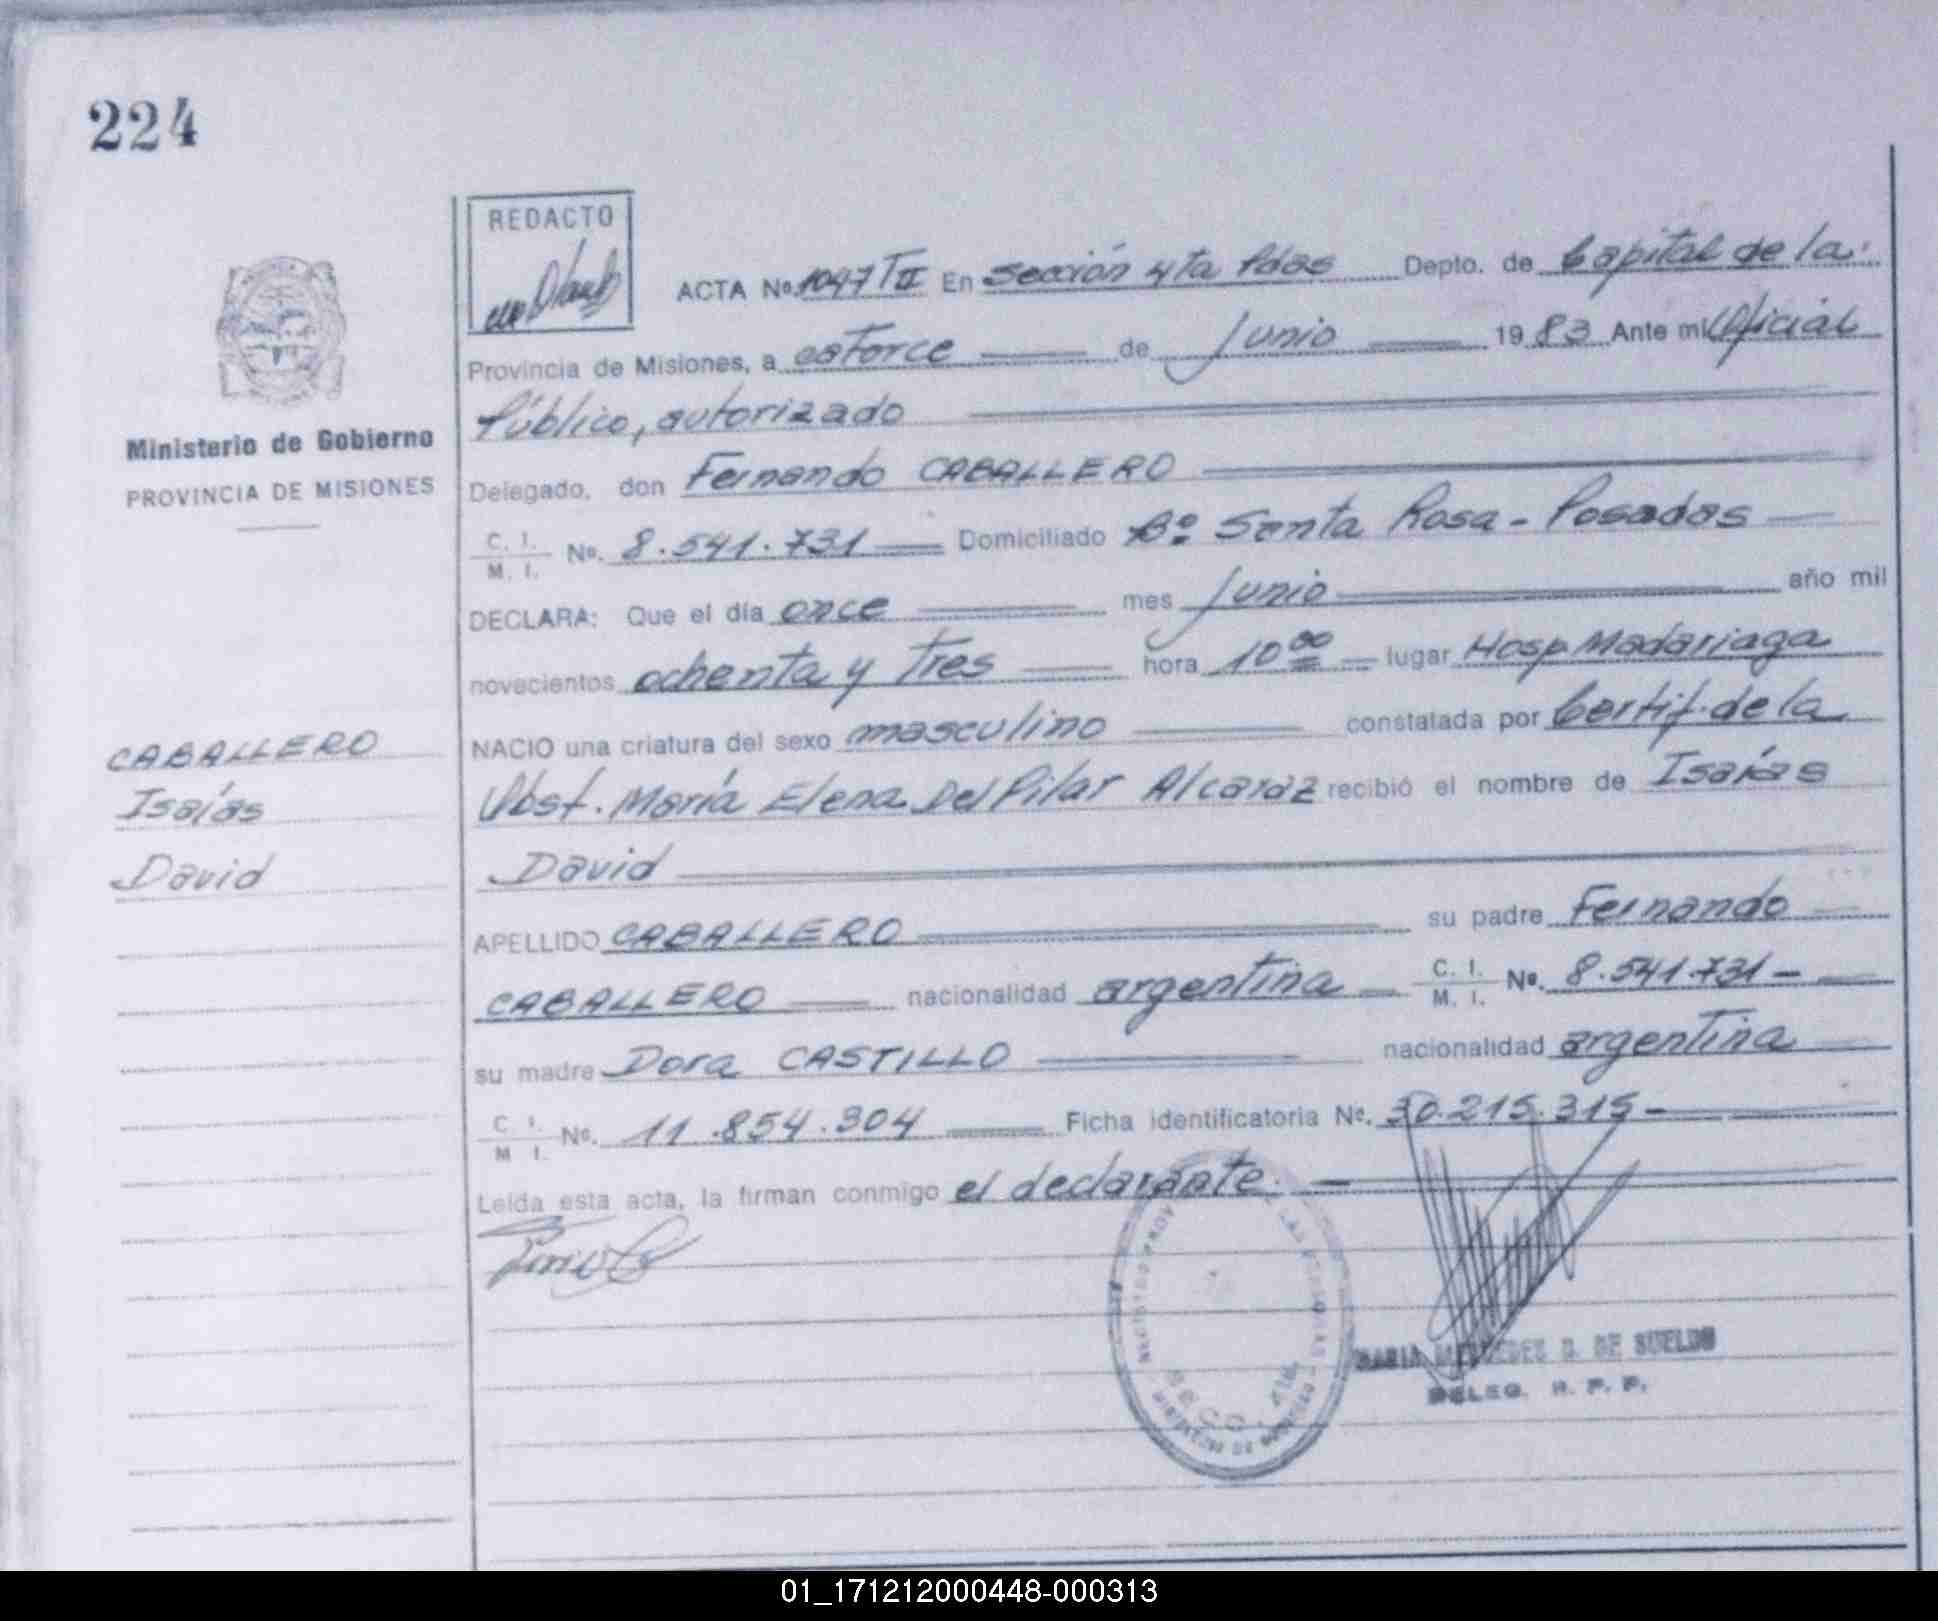 224
REDACTO
ACTA Nº 1047 T II En Sección 4ta Pdas Depto. de Capital de la
Provincia de Misiones, a catorce de Junio 1983 Ante mi Oficial
Público, autorizado
Ministerio de Gobierno
PROVINCIA DE MISIONES
Delegado, don Fernando CABALLERO
C. I. M. I. Nº. 8.541.731 Domiciliado Bº Santa Rosa - Posadas
DECLARA: Que el día once mes Junio año mil
novecientos ochenta y Tres hora 10 00 lugar Hosp. Madariaga
NACIO una criatura del sexo masculino constatada por Certif. de la
Obst. María Elena Del Pilar Alcaraz recibió el nombre de Isaías
David
CABALLERO
Isaías
David
APELLIDO CABALLERO su padre Fernando
CABALLERO nacionalidad argentina C. I. M. I. Nº. 8.541.731 -
su madre Dora CASTILLO nacionalidad argentina
C. I. M I. Nº. 11.854.304 Ficha identificatoria Nº. 30.215.315 -
Leída esta acta, la firman conmigo el declarante. -
MARIA MERCEDES D. DE SUELDO
DELEG. R. P. P.
01_171212000448-000313